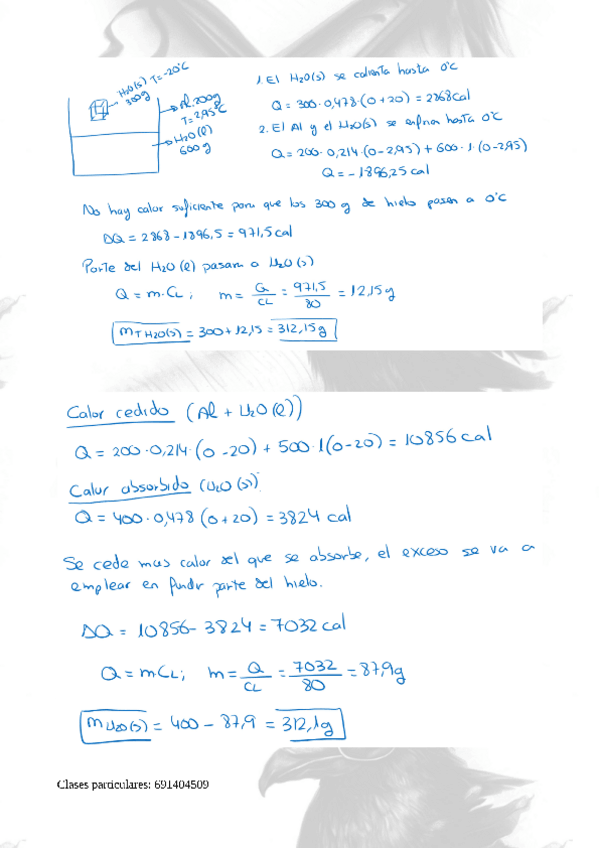 H₂O(s) T=-20°C
300g
Al 200g
T=2,95°C
H₂O(l)
600g
1. El H₂O(s) se calienta hasta 0°C
Q = 300·0,478·(0+20) = 2868 cal
2. El Al y el H₂O(l) se enfrian hasta 0°C
Q = 200·0,214·(0-2,95) + 600·1·(0-2,95)
Q = -1896,25 cal
No hay calor suficiente para que los 300 g de hielo pasen a 0°C
ΔQ = 2868 - 1896,5 = 971,5 cal
Parte del H₂O(l) pasara a H₂O(s)
Q = m·CL; m = Q/CL = 971,5/80 = 12,15 g
mT H₂O(s) = 300 + 12,15 = 312,15 g
Calor cedido (Al + H₂O(l))
Q = 200·0,214·(0-20) + 500·1(0-20) = 10856 cal
Calor absorbido (H₂O(s))
Q = 400·0,478(0+20) = 3824 cal
Se cede mas calor del que se absorbe, el exceso se va a
emplear en fundir parte del hielo.
ΔQ = 10856 - 3824 = 7032 cal
Q = mCL; m = Q/CL = 7032/80 = 87,9g
mH₂O(s) = 400 - 87,9 = 312,1g
Clases particulares: 691404509